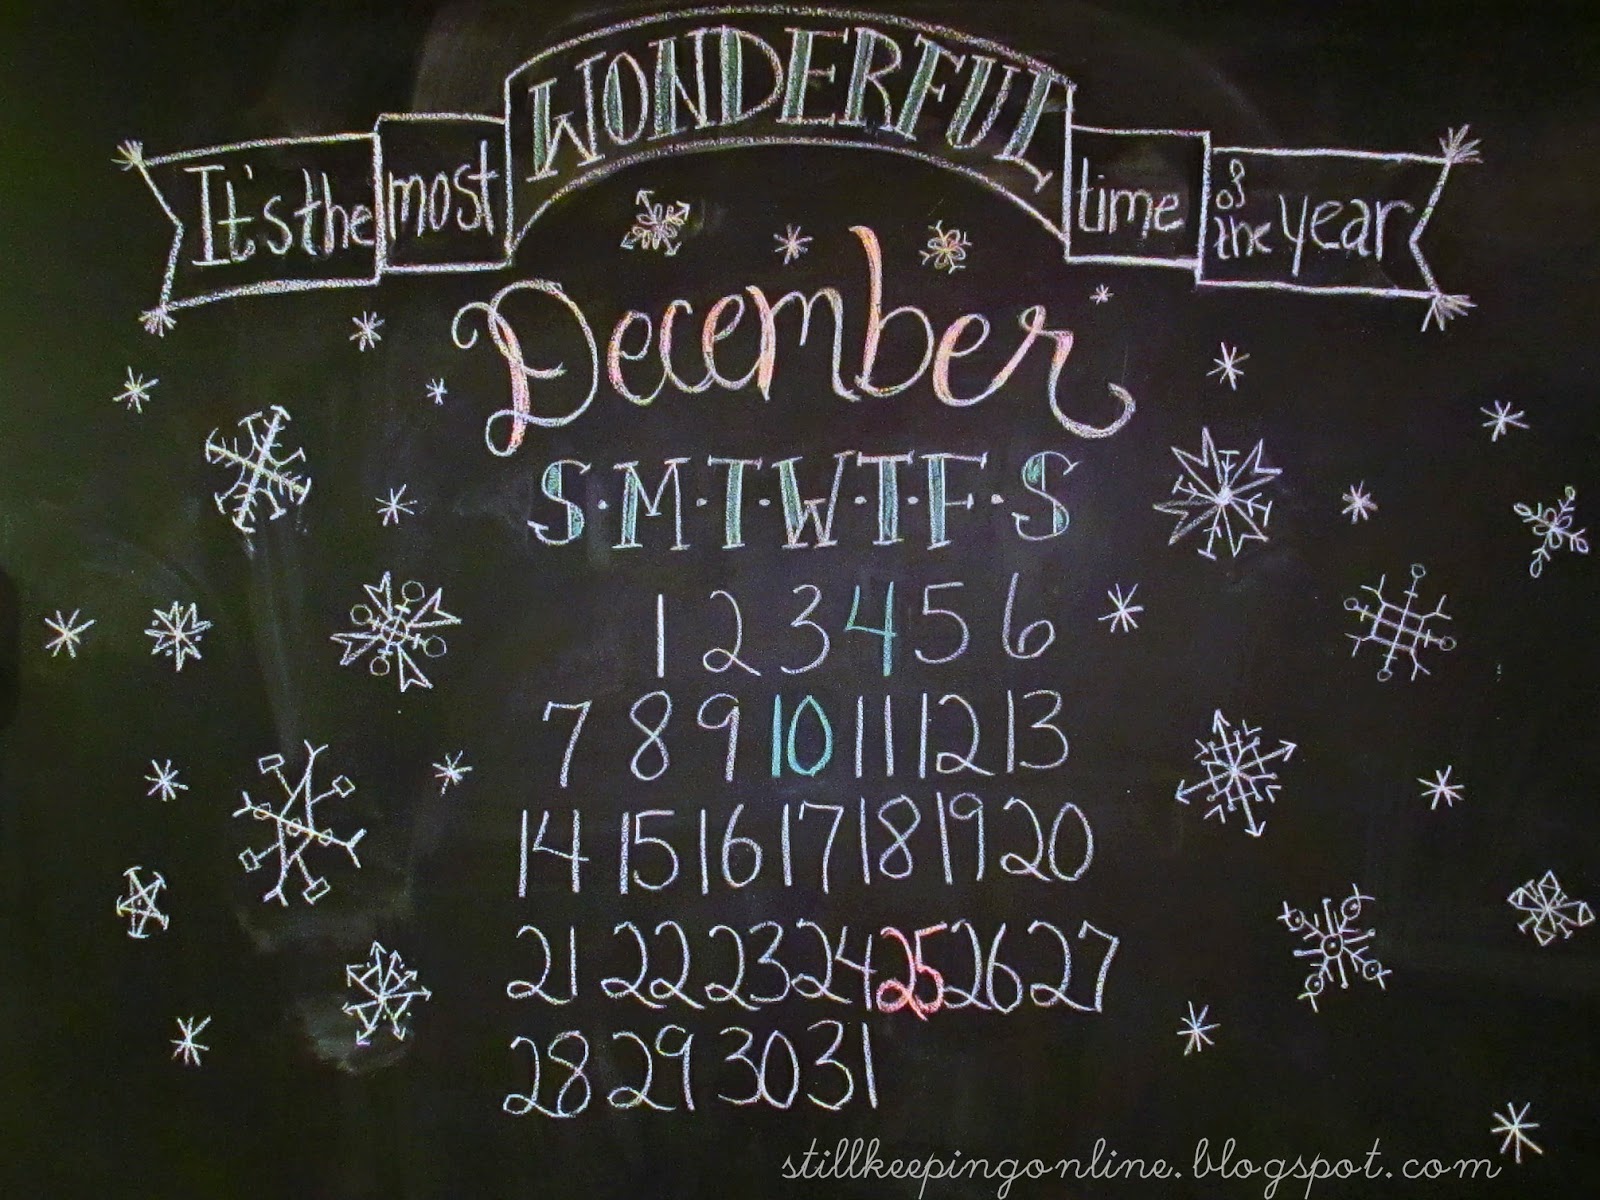 It's the most WONDERFUL time of the year
December
S·M·T·W·T·F·S
1 2 3 4 5 6
7 8 9 10 11 12 13
14 15 16 17 18 19 20
21 22 23 24 25 26 27
28 29 30 31
stillkeepingonline.blogspot.com